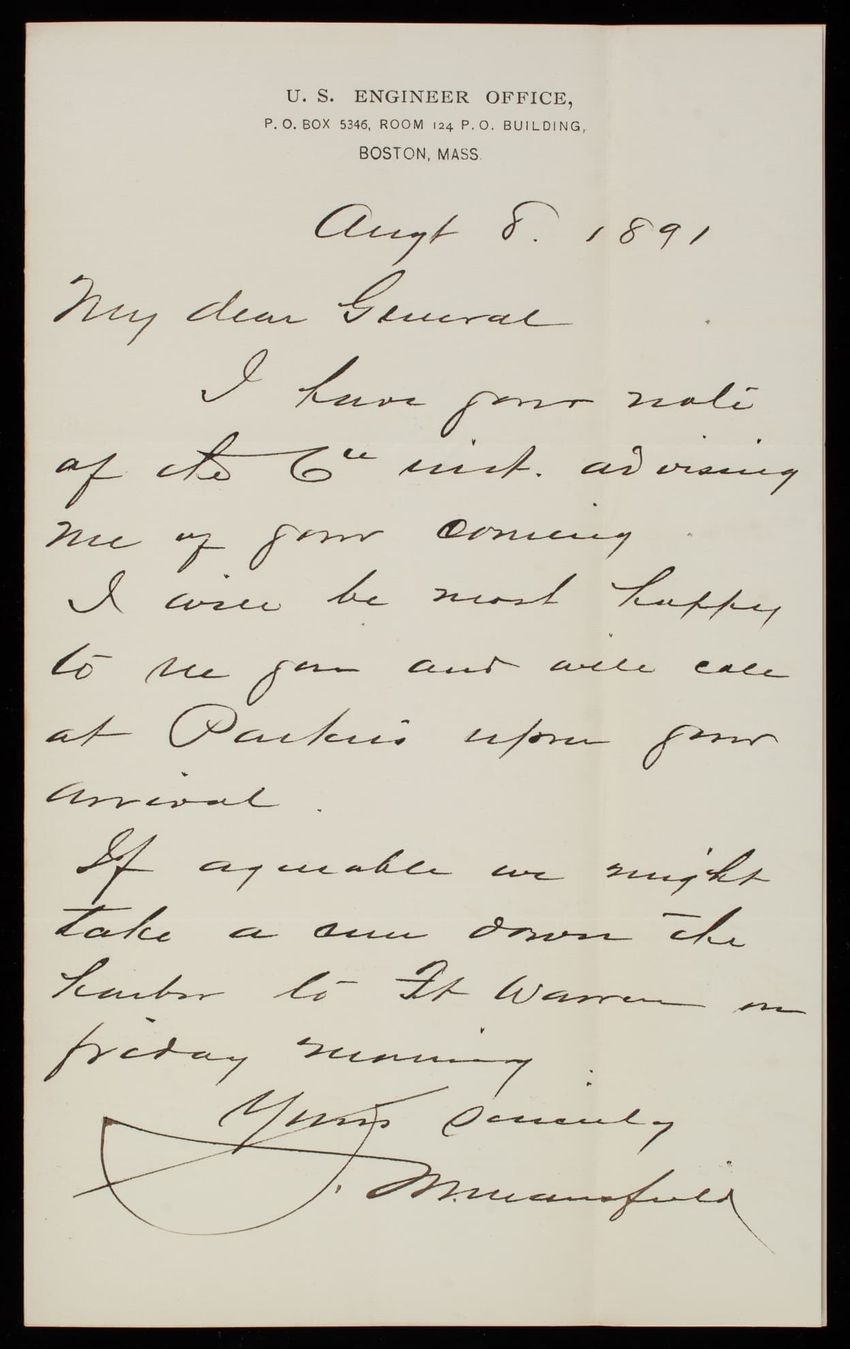 U. S. ENGINEER OFFICE,
P. O. BOX 5346, ROOM 124 P. O. BUILDING,
BOSTON, MASS.
Augt 8. 1891
My dear General
I have your note
of the 6th inst. advising
me of your coming.
I will be most happy
to see you and will call
at Parkers upon your
arrival.
If agreeable we might
take a run down the
harbor to Ft Warren on
friday morning.
Yours Sincerely
S. M. Mansfield